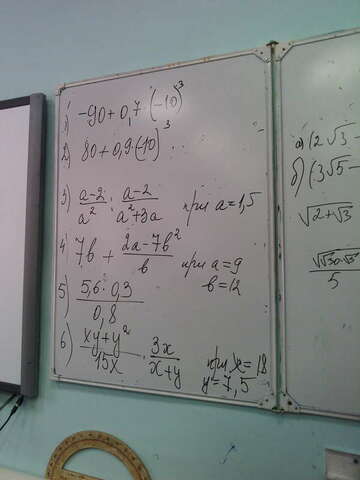 1) -90+0,7·(-10)³
2) 80+0,9·(-10)³
3) (a-2)/a² : (a-2)/(a²+3a) при a=1,5
4) 7b + (2a-7b²)/b при a=9
b=12
5) (5,6·0,3)/0,8
6) (xy+y²)/15x · 3x/(x+y) при x=18
y=7,5
а) (2√3-
б) (3√5-
√(2+√3
5